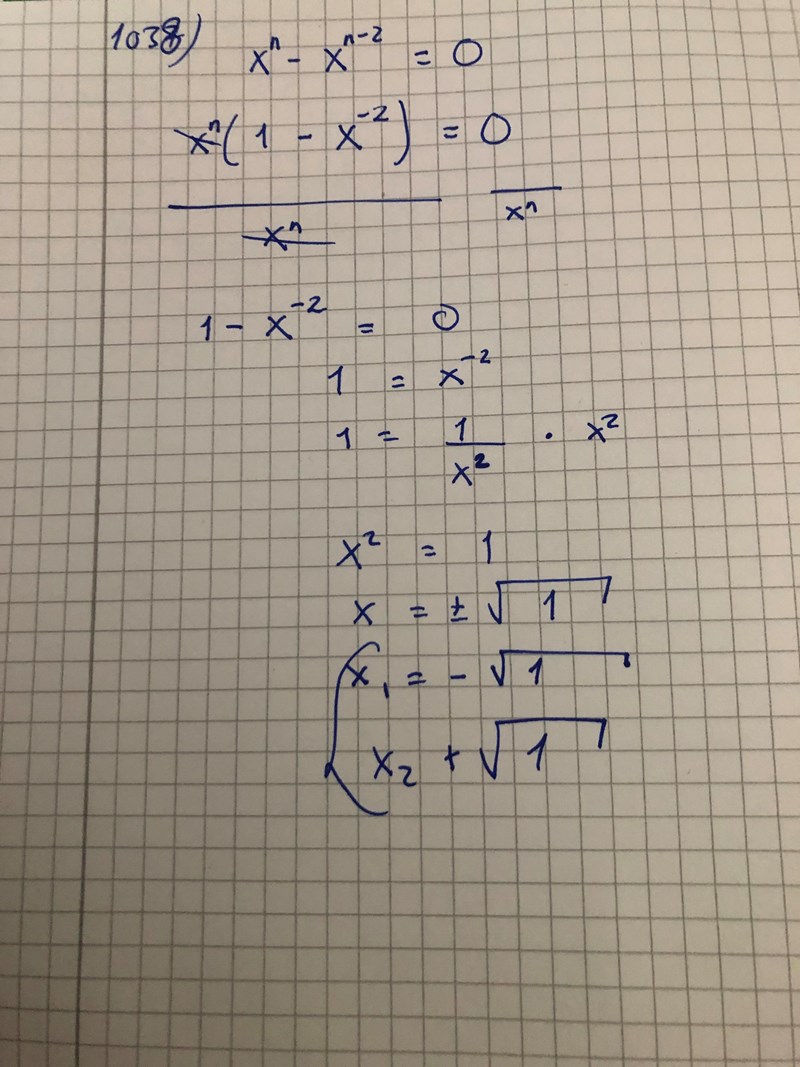 1038) xⁿ - xⁿ⁻² = 0
xⁿ(1 - x⁻²) = 0
xⁿ xⁿ
1 - x⁻² = 0
1 = x⁻²
1 = 1/x² · x²
x² = 1
x = ±√1
x₁ = -√1
x₂ + √1